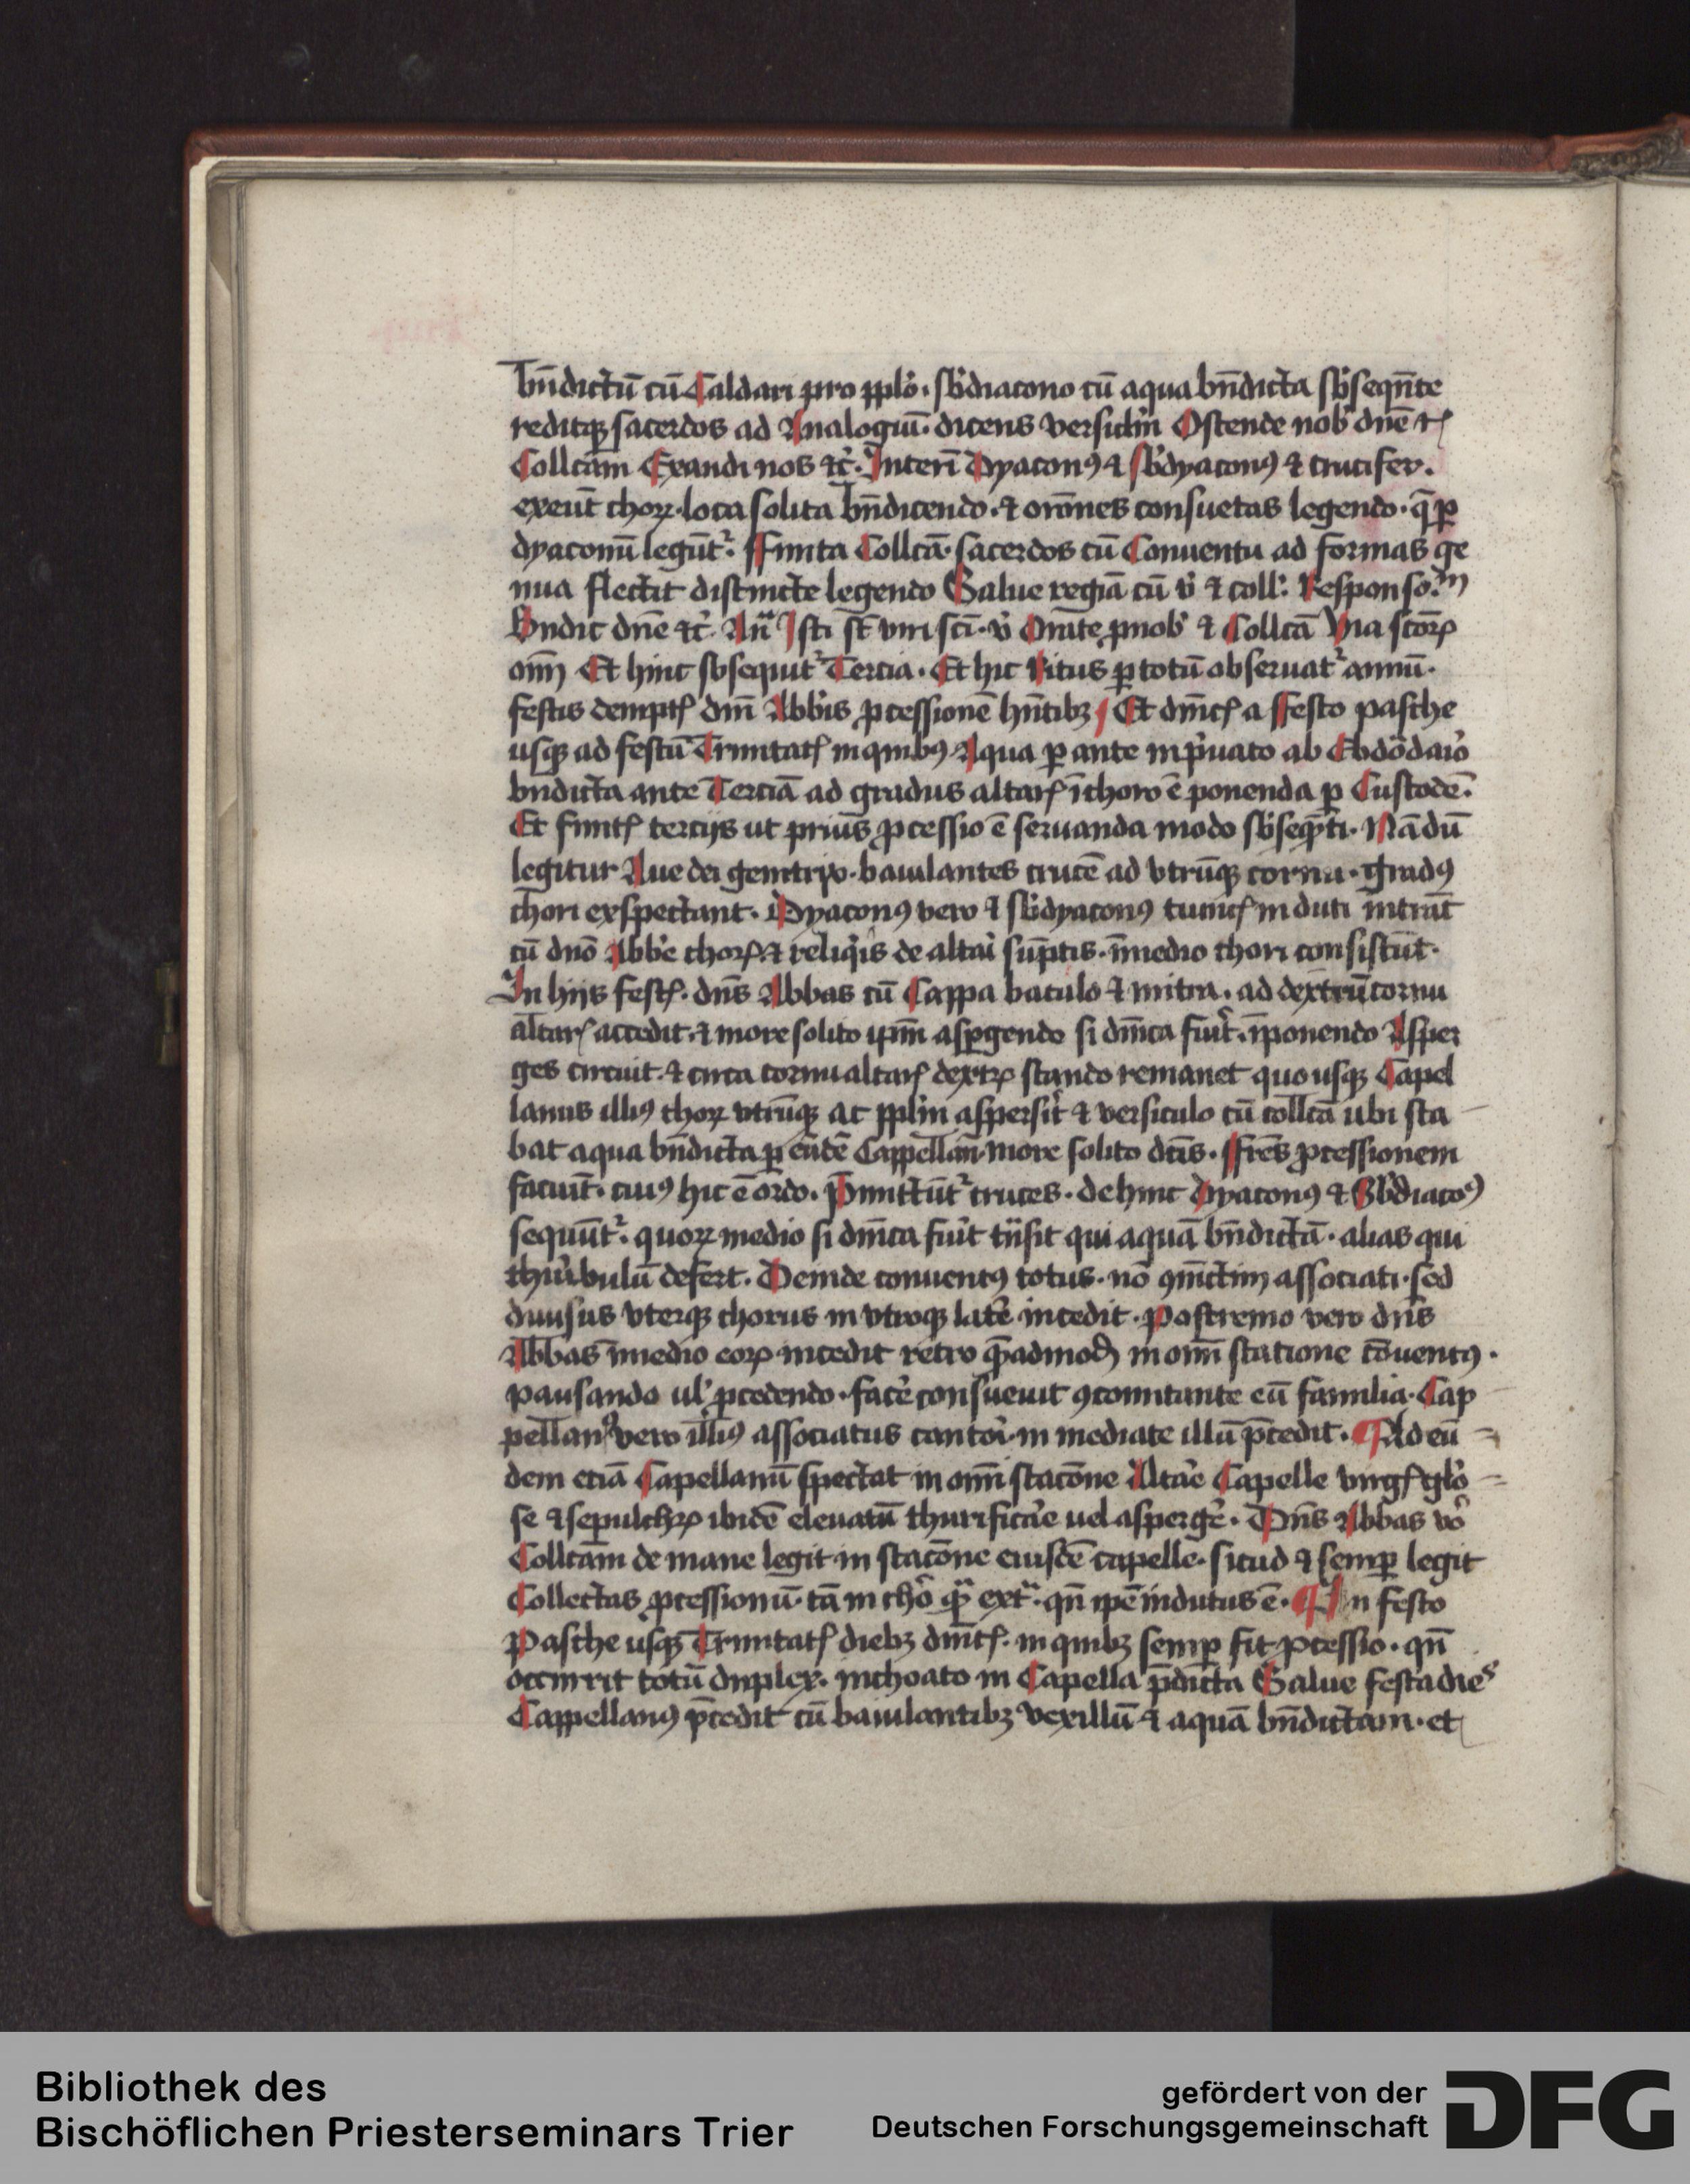 bn̄dictū cū Caldari pro pplo̊. sb̓diacono cū aqua bn̄dicta sb̓seqn̄te
reditqꝫ sacerdos ad Analogiū. dicens versiclm̄ Ostende nob̓ dn̄e ⁊ꝭ
Collc̄am Exaudi nos ⁊c̓. Interī Dyaconꝰ ⁊ sb̓dyaconꝰ ⁊ crucifer.
exeūt choꝝ. loca solita bn̄dicendo. ⁊ orōnes consuetas legendo. q̄ ꝑ
dyaconū legūt᷑. Finita Collc̄a. sacerdos cū Conuentu ad formas ge
nua flectit distincte legendo Salue regīa cū v̓ ⁊ coll᷑.
Bn̄dic dn̄e ⁊c̓. An̄ Isti st̄ viri sc̄i. v̓ Orate ꝓ nob̓ ⁊ Collc̄a Via sc̄oꝝ
om̄ Et hinc sb̓sequit᷑ Tercia. Et hic Ritus ꝑ totū obseruat᷑ annū.
festis demptꝭ dn̄i Abb̓is ꝓcessionē hn̄tibꝫ Et dn̄icꝭ a Festo pasche
usqꝫ ad festū Trinitatꝭ in quibꝰ Aqua ꝑ ante in p̓uato ab Ebdōdaio̊
bn̄dicta ante Terciā ad gradus altarꝭ ī choro ē ponenda ꝑ Custodē.
Et finitꝭ tercijs ut prius ꝓcessio ē seruanda modo sb̓seqn̄ti. Nā dū
legitur Aue dei genitrix. baiulantes crucē ad vtrūqꝫ cornu. gradꝰ
chori exspectant. Dyaconꝰ vero ⁊ sb̓dyaconꝰ tunicꝭ induti intrāt
cū dn̄o Abb̓e choꝝ. ⁊ reliq̓is de altai̓ sūptis. ī medio chori consistūt.
In hijs festꝭ. dn̄s Abbas cū Cappa baculo ⁊ mitra. ad dextrū cornu
altarꝭ accedit. ⁊ more solito ip̄m aspgendo si dn̄ica fuīt. īponendo Asper
ges circuit. ⁊ circa cornu altarꝭ dextꝝ stando remanet quousqꝫ Capel
lanus illiꝰ choꝝ vtrūqꝫ ac pplm̄ aspersīt ⁊ versiculo cū collc̄a ubi sta
bat aqua bn̄dicta ꝑ eūdē Cappellan̄ more solito dc̄is. Fr̄es ꝓcessionem
faciūt. cuiꝰ hic ē ordo. P̄mittūt᷑ cruces. dehinc Dyaconꝰ ⁊ Sb̓diacoꝰ
sequūt᷑. quoꝝ medio si dn̄ica fuīt tn̄sit qui aquā bn̄dictā. alias qui
thuribulū defert. Deinde conuentꝰ totus. nō ꝯiūctim associati. sed
diuisus vterqꝫ chorus in vtroqꝫ late̓ incedit. Postremo vero dn̄s
Abbas ī medio eoꝝ incedit retro qēadmoꝺ in om̄i statione cōuentꝰ.
pausando ul̓ ꝓcedendo. face̓ consueuit ꝯcomitante eū familia. Cap
pellanꝰ vero illiꝰ associatus cantoi̓. in mediate illū p̄cedit. ¶ Ad eū
dem etiā Capellanū spectat in om̄i stacōne Alta̓e Capelle virgꝭ glo̓
se ⁊ sepulchꝝ ibidē eleuatū thurifica̓e uel asperge̓. Dn̄s Abbas vo̊
Collc̄am de mane legit in stacōne eiusdē capelle. sicud ⁊ semꝑ legit
Collectas ꝓcessionū. tā in cho̓ qͣ ext̄ͣ. qn̄ ip̄e indutus ē. ¶ In festo
Pasche usqꝫ Trinitatꝭ diebꝫ dn̄icꝭ. in quibꝫ semꝑ fit ꝓcessio. qn̄
occurrit totū duplex. inchoato in Capella p̄dicta Salue festa dies
Cappellanꝰ p̄cedit cū baiulantibꝫ vexillū ⁊ aquā bn̄dictam. et
Bibliothek des
Bischöflichen Priesterseminars Trier
gefördert von der
Deutschen Forschungsgemeinschaft
DFG